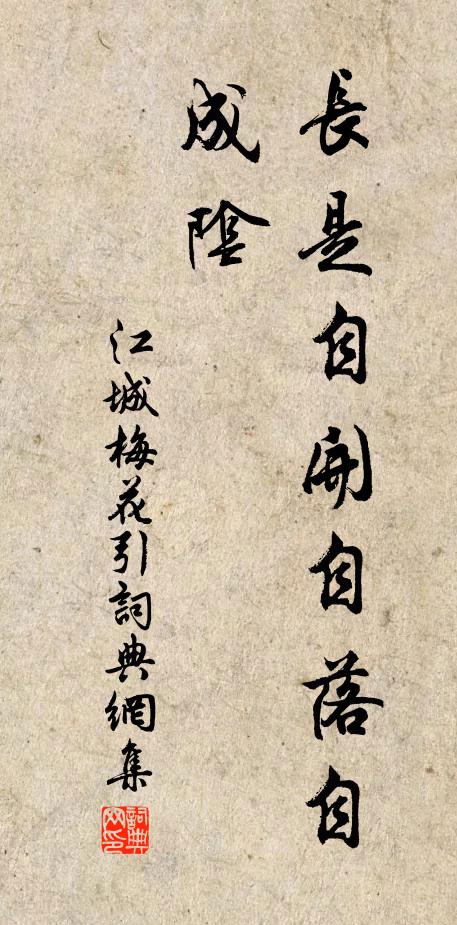 長是自開自落自
成陰
江城梅花引詞典網集
詞典
网印